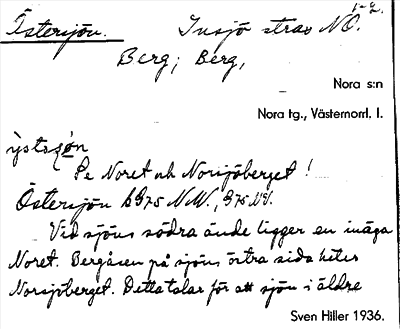 1-2.
Östersjön. Insjö strax NO.
Berg; Berg,
Nora s:n
Nora tg., Västernorrl. l.
ỳstsȷø̀n
Se Noret och Norsjöberget!
Östersjön b 975 NW., 975 NV.
Vid sjöns södra ände ligger en inäga
Noret. Bergåsen på sjöns östra sida heter
Norsjöberget. Detta talar för att sjön i äldre
Sven Hiller 1936.